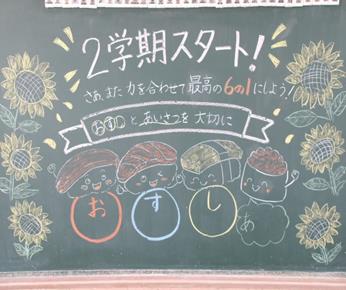 2学期スタート!
さあ、また力を合わせて最高の6の1にしよう!
おすしとあいさつを大切に
おすしあ